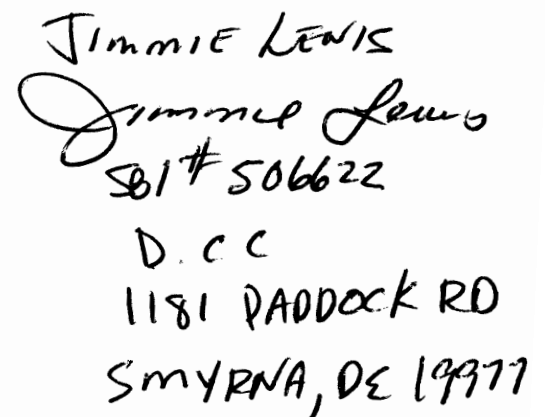 JIMMIE LEWIS
Jimmie Lewis
SBI# 506622
D. C C
1181 PADDOCK RD
SMYRNA, DE 19977